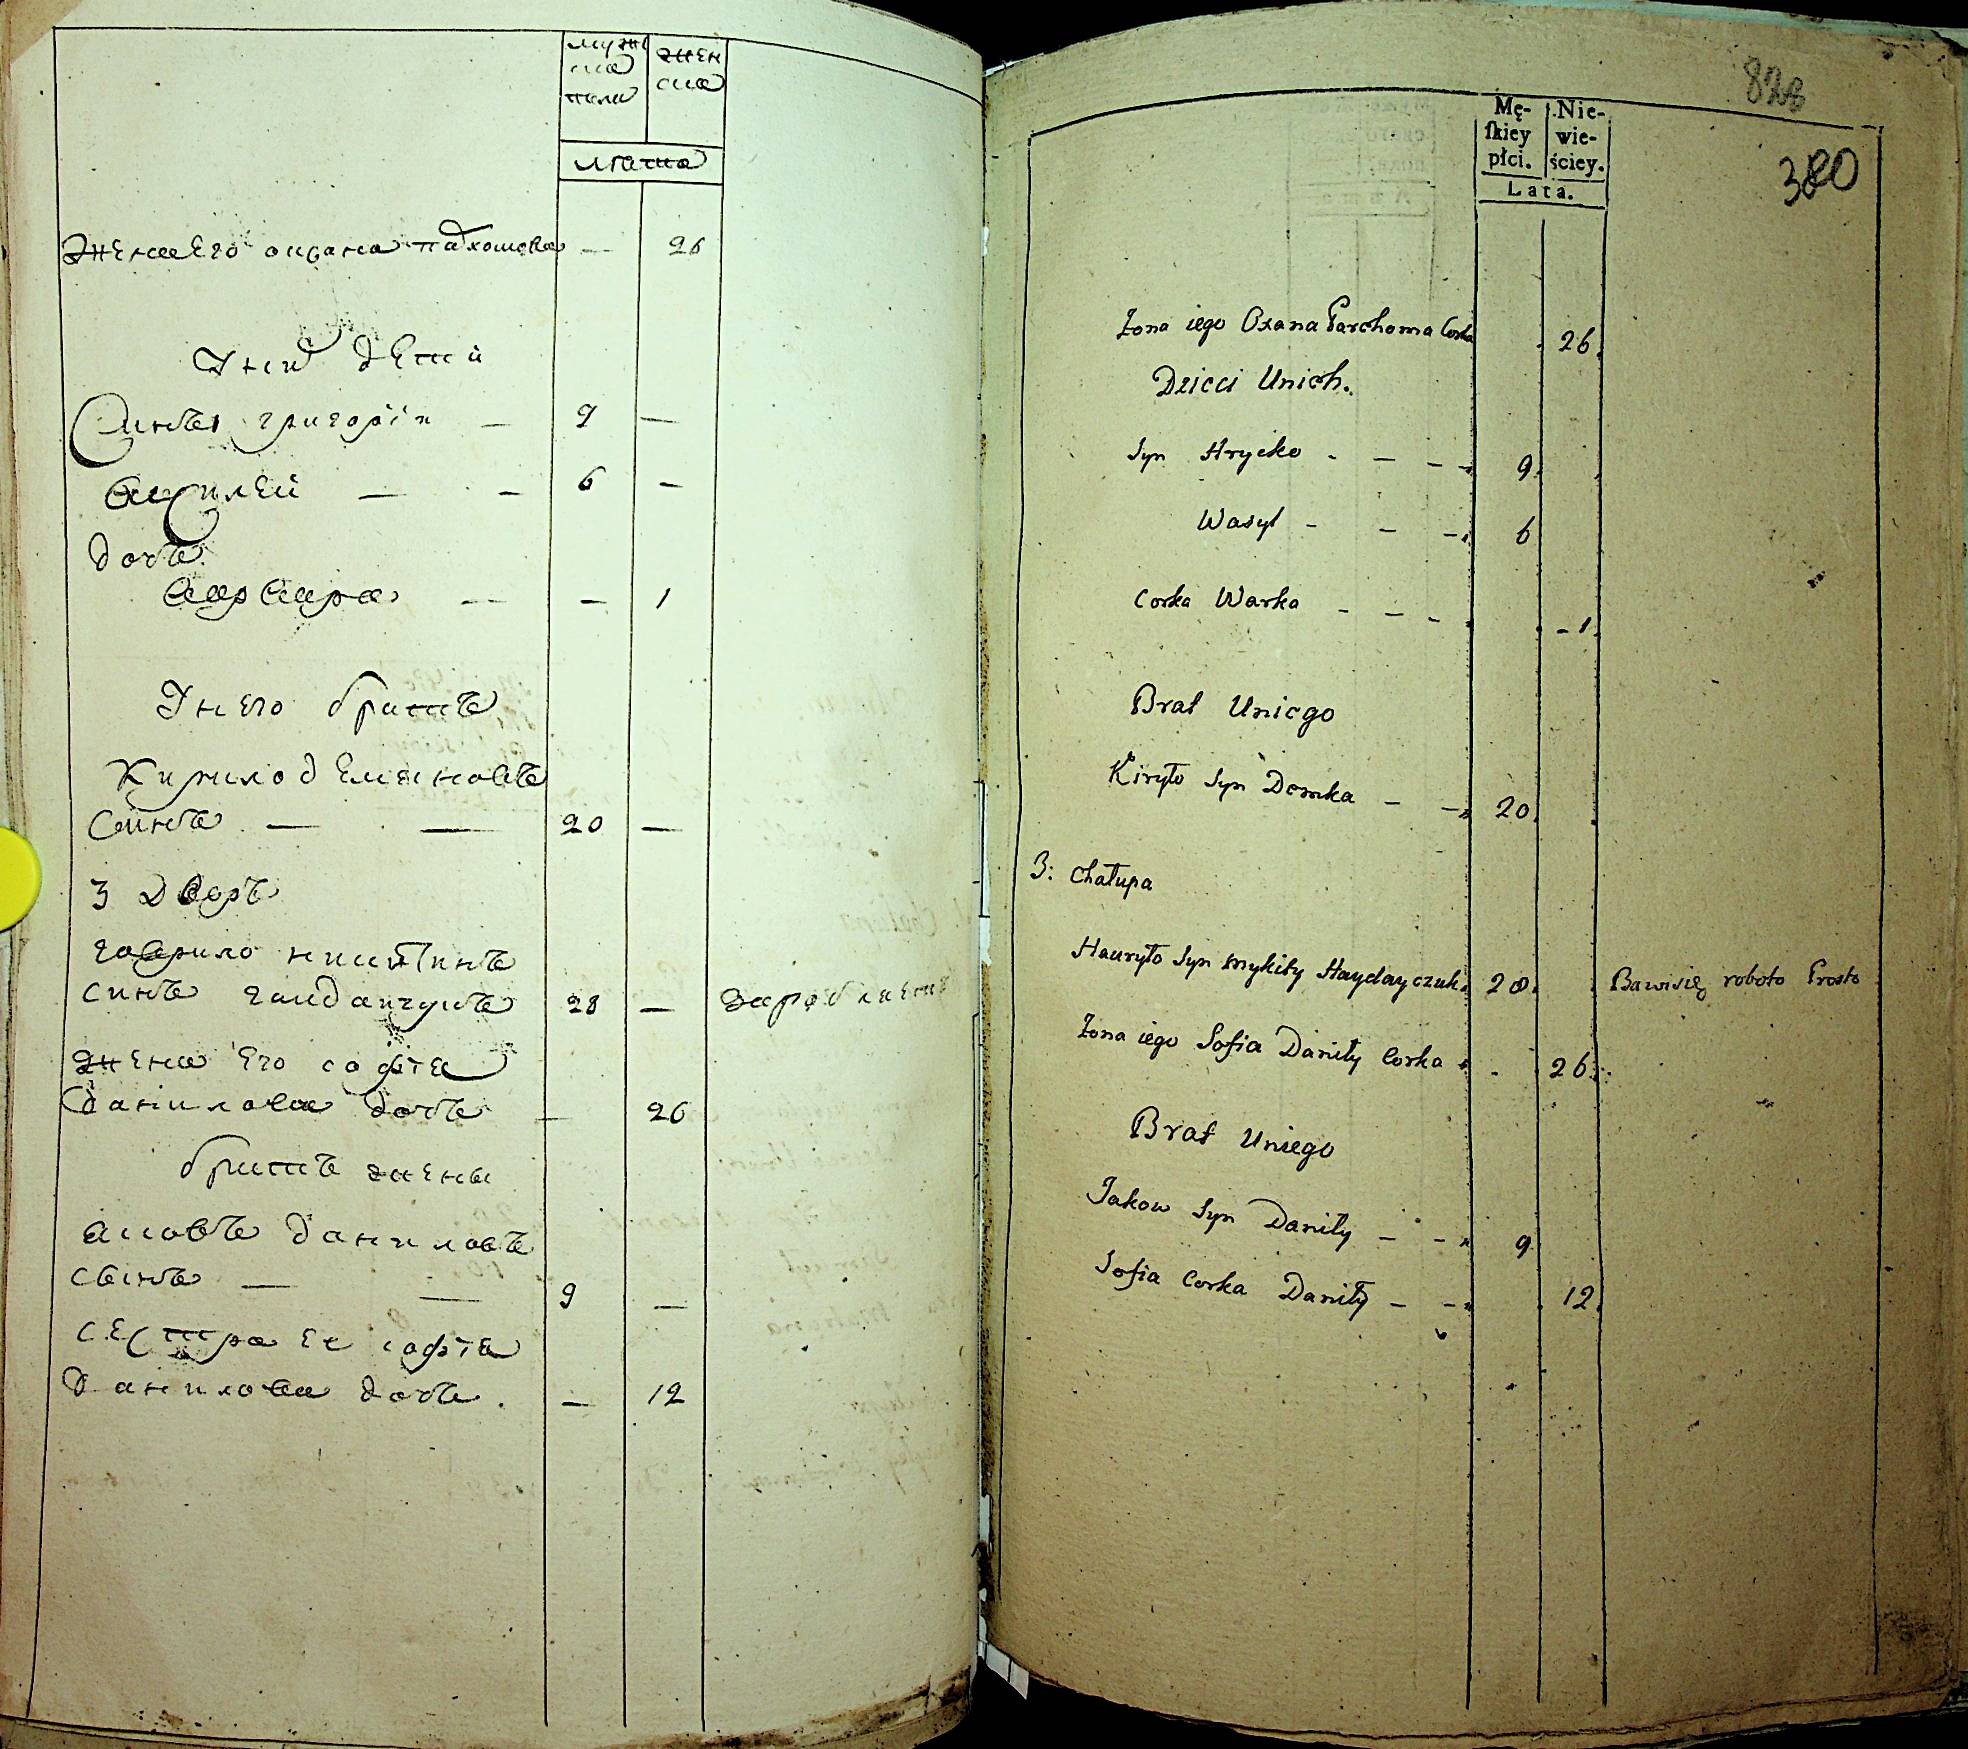 мужс
ка
пола
женс
ка
лѣта
жена Его оксана пахомова — 26
У них дети
Синъ григорїи — 9 —
василей — — 6 —
дочь
варвара — — 1
У него братъ
Кирило демяновъ
синъ — — 20 —
3 Дворъ
гаврило никитинъ
синъ гайдайчукъ 28 —
жена Его софїя
данилова дочь — 26
братъ жены
яковъ даниловъ
синъ — — 9 —
сестра Ее софїя
данилова дочь . — 12
828
380
Mę-
ſkiey
płci.
Nie-
wie-
ściey.
Lata.
Żona iego Oxana Parchoma Corka 26.
Dzieci Unich.
Syn Hrycko - - - 9.
Wasyl - - - 6
Corka Warka - - - - 1.
Brat Uniego
Kiryło Syn Demka - - 20.
3: Chałupa
Hauryło Syn Mykity Haydayczuk. 28. Bawi się roboto Prosto
Żona iego Sofia Daniły Corka 26.
Brat Uniego
Jakow Syn Daniły - - 9
Sofia Corka Daniły - - 12.